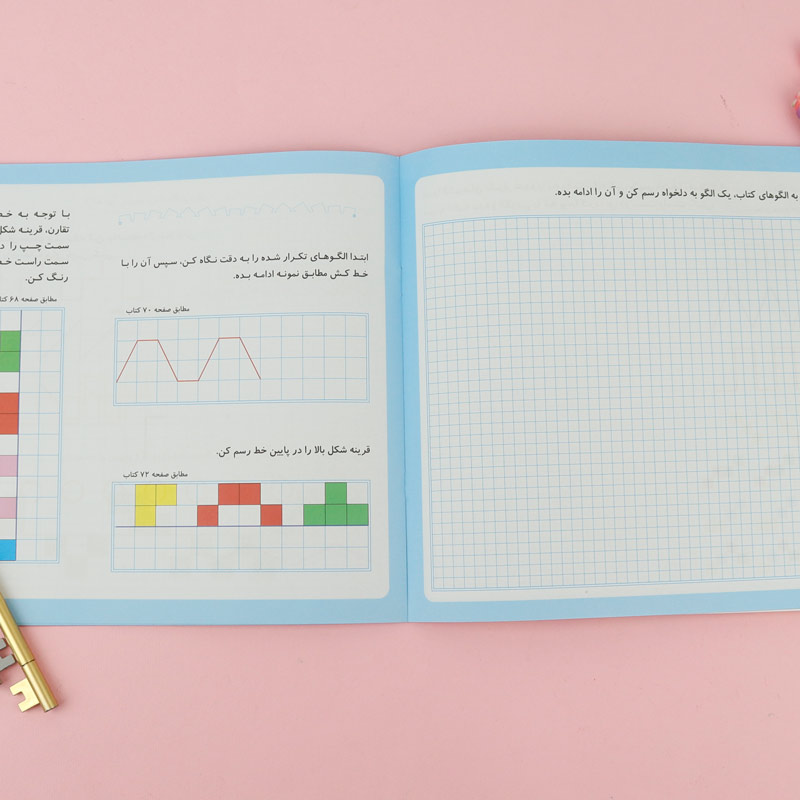 به الگوهای کتاب، یک الگو به دلخواه رسم کن و آن را ادامه بده.
ابتدا الگوهای تکرار شده را به دقت نگاه کن، سپس آن را با
خط کش مطابق نمونه ادامه بده.
مطابق صفحه ۷۰ کتاب
قرینه شکل بالا را در پایین خط رسم کن.
مطابق صفحه ۷۲ کتاب
با توجه به
تقارن، قرینه
سمت چپ را
سمت راست
رنگ کن.
مطابق صفحه ۶۸